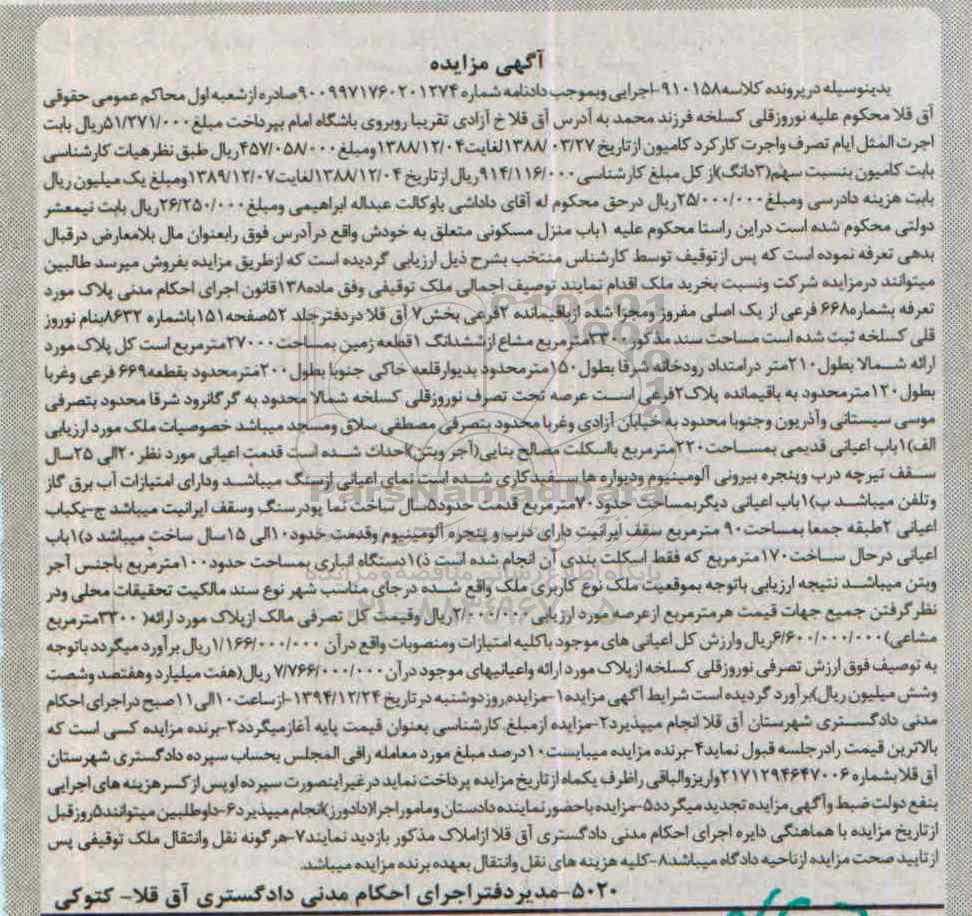 آگهی مزایده
بدینوسیله در پرونده کلاسه ۹۱۰۱۵۸-اجرایی وبموجب دادنامه شماره ۹۰۰۹۹۷۱۷۶۰۲۰۱۲۷۴ صادره از شعبه اول محاکم عمومی حقوقی
آق قلا محکوم علیه نوروزقلی کسلخه فرزند محمد به آدرس آق قلا خ آزادی تقریبا روبروی باشگاه امام بپرداخت مبلغ ۵۱/۲۷۱/۰۰۰ریال بابت
اجرت المثل ایام تصرف واجرت کارکرد کامیون از تاریخ ۱۳۸۸/۰۳/۲۷ لغایت ۱۳۸۸/۱۲/۰۴ ومبلغ ۴۵۷/۰۵۸/۰۰۰ریال طبق نظر هیات کارشناسی
بابت کامیون بنسبت سهم(۳دانگ)از کل مبلغ کارشناسی ۹۱۴/۱۱۶/۰۰۰ریال از تاریخ ۱۳۸۸/۱۲/۰۴ لغایت ۱۳۸۹/۱۲/۰۷ ومبلغ یک میلیون ریال
بابت هزینه دادرسی ومبلغ ۲۵/۰۰۰/۰۰۰ریال درحق محکوم له آقای داداشی باوکالت عبداله ابراهیمی ومبلغ ۲۶/۲۵۰/۰۰۰ریال بابت نیمعشر
دولتی محکوم شده است دراین راستا محکوم علیه ۱باب منزل مسکونی متعلق به خودش واقع در آدرس فوق رابعنوان مال بلامعارض درقبال
بدهی تعرفه نموده است که پس از توقیف توسط کارشناس منتخب بشرح ذیل ارزیابی گردیده است که ازطریق مزایده بفروش میرسد طالبین
میتوانند درمزایده شرکت ونسبت بخرید ملک اقدام نمایند توصیف اجمالی ملک توقیفی وفق ماده۱۳۸قانون اجرای احکام مدنی پلاک مورد
تعرفه بشماره۶۶۸ فرعی از یک اصلی مفروز ومجزا شده ازباقیمانده ۲فرعی بخش۷ آق قلا دردفترجلد ۵۲صفحه۱۵۱باشماره ۸۶۳۲بنام نوروز
قلی کسلخه ثبت شده است مساحت سند مذکور ۳۳۰۰مترمربع مشاع ازششدانگ ۱قطعه زمین بمساحت۲۷۰۰۰مترمربع است کل پلاک مورد
ارائه شمالا بطول۲۱۰متر درامتداد رودخانه شرقا بطول۱۵۰مترمحدود بدیوارقلعه خاکی جنوبا بطول۲۰۰مترمحدود بقطعه۶۶۹ فرعی وغربا
بطول۱۲۰مترمحدود به باقیمانده پلاک۲فرعی است عرصه تحت تصرف نوروزقلی کسلخه شمالا محدود به گرگانرود شرقا محدود بتصرفی
موسی سیستانی وآذریون وجنوبا محدود به خیابان آزادی وغربا محدود بتصرفی مصطفی سلاق ومسجد میباشد خصوصیات ملک مورد ارزیابی
الف)۱باب اعیانی قدیمی بمساحت۲۲۰مترمربع بااسکلت مصالح بنایی(آجر وبتن)احداث شده است قدمت اعیانی مورد نظر۲۰الی ۲۵سال
سقف تیرچه درب وپنجره بیرونی آلومینیوم ودیواره ها سفیدکاری شده است نمای اعیانی ازسنگ میباشد ودارای امتیازات آب برق گاز
وتلفن میباشد ب)۱باب اعیانی دیگربمساحت حدود۷۰مترمربع قدمت حدود۵سال ساخت نما پودرسنگ وسقف ایرانیت میباشد ج-یکباب
اعیانی ۲طبقه جمعا بمساحت۹۰ مترمربع سقف ایرانیت دارای درب و پنجره آلومینیوم وقدمت حدود۱۰الی ۱۵سال ساخت میباشد د)۱باب
اعیانی درحال ساخت۱۷۰مترمربع که فقط اسکلت بندی آن انجام شده است ذ)۱دستگاه انباری بمساحت حدود۱۰۰مترمربع باجنس آجر
وبتن میباشد نتیجه ارزیابی باتوجه بموقعیت ملک نوع کاربری ملک واقع شده درجای مناسب شهر نوع سند مالکیت تحقیقات محلی ودر
نظرگرفتن جمیع جهات قیمت هرمترمربع ازعرصه مورد ارزیابی ۲/۰۰۰/۰۰۰ریال وقیمت کل تصرفی مالک ازپلاک مورد ارائه( ۳۳۰۰مترمربع
مشاعی)۶/۶۰۰/۰۰۰/۰۰۰ریال وارزش کل اعیانی های موجود باکلیه امتیازات ومنصوبات واقع درآن ۱/۱۶۶/۰۰۰/۰۰۰ریال برآورد میگردد باتوجه
به توصیف فوق ارزش تصرفی نوروزقلی کسلخه ازپلاک مورد ارائه واعیانیهای موجود درآن ۷/۷۶۶/۰۰۰/۰۰۰ ریال(هفت میلیارد وهفتصد وشصت
وشش میلیون ریال)برآورد گردیده است شرایط آگهی مزایده۱-مزایده روزدوشنبه در تاریخ ۱۳۹۴/۱۲/۲۴-ازساعت ۱۰الی۱۱صبح دراجرای احکام
مدنی دادگستری شهرستان آق قلا انجام میپذیرد۲-مزایده ازمبلغ کارشناسی بعنوان قیمت پایه آغازمیگردد۳-برنده مزایده کسی است که
بالاترین قیمت رادرجلسه قبول نماید۴-برنده مزایده میبایست۱۰درصد مبلغ مورد معامله رافی المجلس بحساب سپرده دادگستری شهرستان
آق قلا بشماره ۲۱۷۱۲۹۴۶۴۷۰۰۶واریزوالباقی راظرف یکماه ازتاریخ مزایده پرداخت نماید درغیراینصورت سپرده اوپس ازکسرهزینه های اجرایی
بنفع دولت ضبط وآگهی مزایده تجدید میگردد۵-مزایده باحضورنماینده دادستان ومامور اجرا(دادورز)انجام میپذیرد۶-داوطلبین میتوانند۵روزقبل
ازتاریخ مزایده با هماهنگی دایره اجرای احکام مدنی دادگستری آق قلا ازاملاک مذکور بازدید نمایند۷-هرگونه نقل وانتقال ملک توقیفی پس
از تایید صحت مزایده ازناحیه دادگاه میباشد۸-کلیه هزینه های نقل وانتقال بعهده برنده مزایده میباشد.
۵۰۲۰-مدیردفتراجرای احکام مدنی دادگستری آق قلا- کتوکی
ParsNamadData